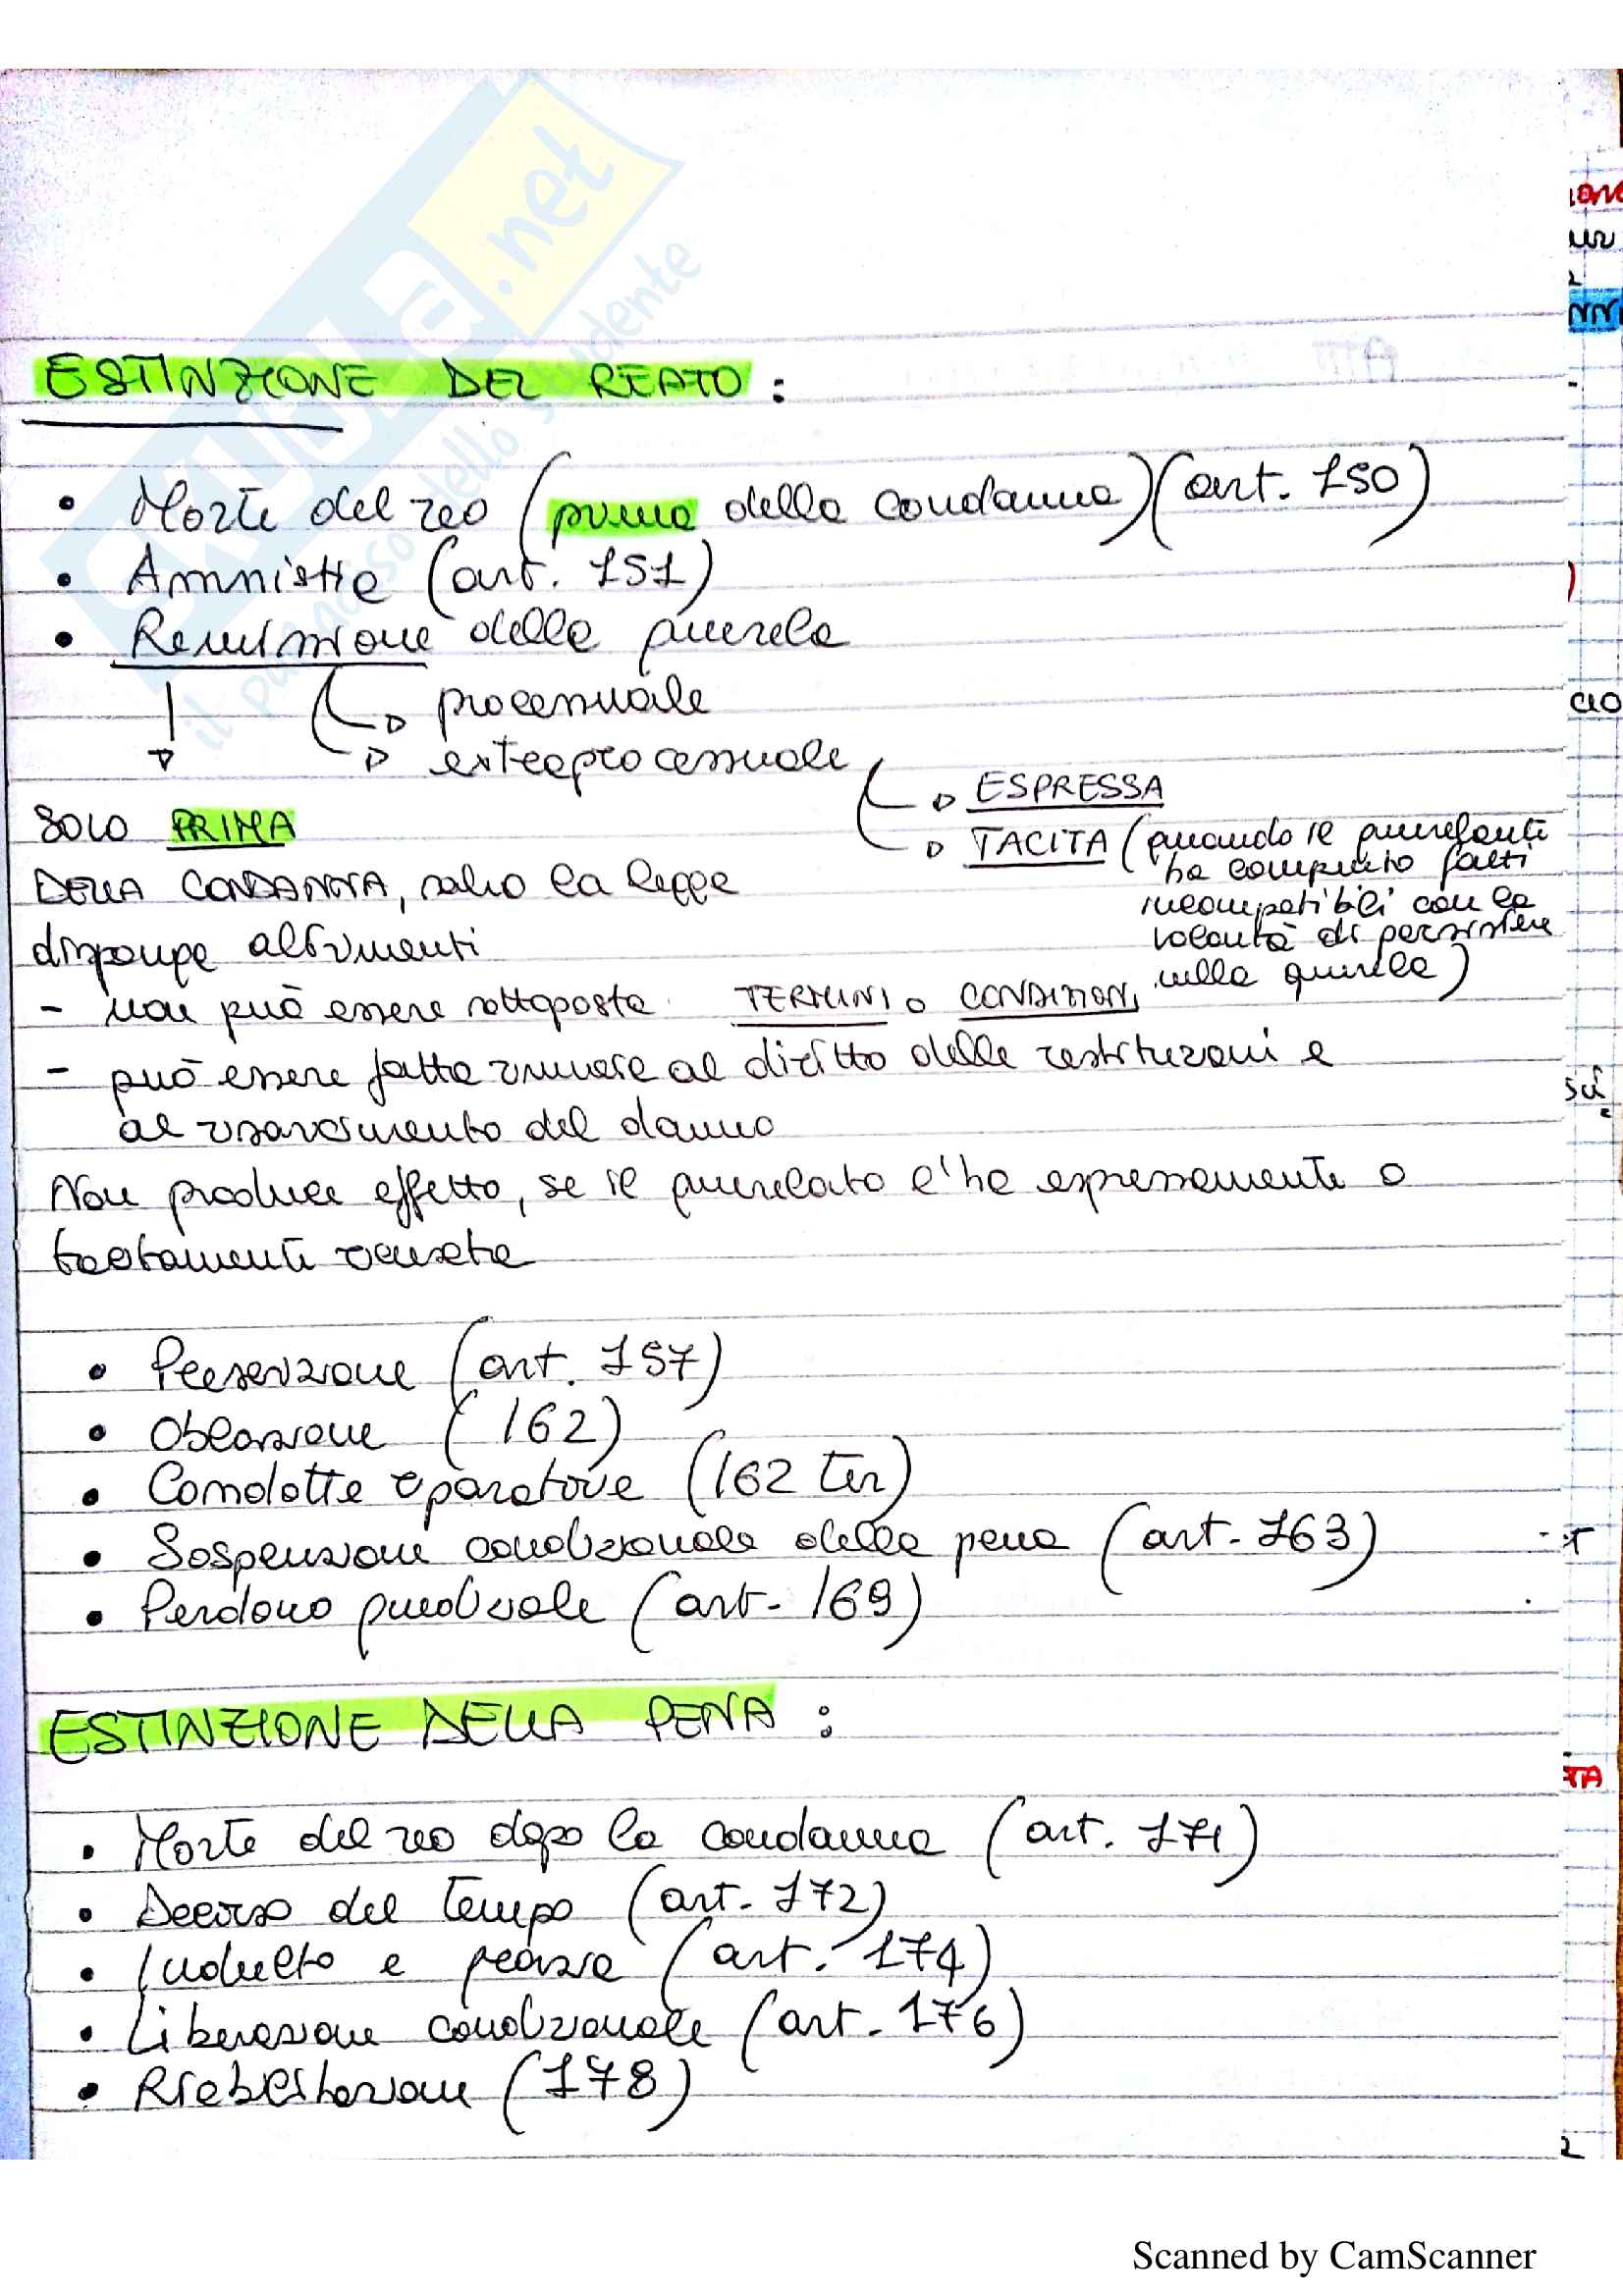 ESTINZIONE DEL REATO :
• Morte del reo (prima della condanna) (art. 150)
• Amnistia (art. 151)
• Remissione della querela
processuale
extraprocessuale
ESPRESSA
TACITA (quando il querelante
ha compiuto fatti
incompatibili con la
volontà di persistere
nella querela)
SOLO PRIMA
DELLA CONDANNA, salvo la legge
disponga altrimenti
- non può essere sottoposta TERMINI o CONDIZIONI
- può essere fatta rinuncia al diritto delle restituzioni e
al risarcimento del danno
Non produce effetto, se il querelato l'ha espressamente o
tacitamente ricusata
• Prescrizione (art. 157)
• Oblazione (162)
• Condotte riparatorie (162 ter)
• Sospensione condizionale della pena (art. 163)
• Perdono giudiziale (art. 169)
ESTINZIONE DELLA PENA :
• Morte del reo dopo la condanna (art. 171)
• Decorso del tempo (art. 172)
• Indulto e grazia (art. 174)
• Liberazione condizionale (art. 176)
• Riabilitazione (178)
skuola.net
il paradiso dello studente
Scanned by CamScanner